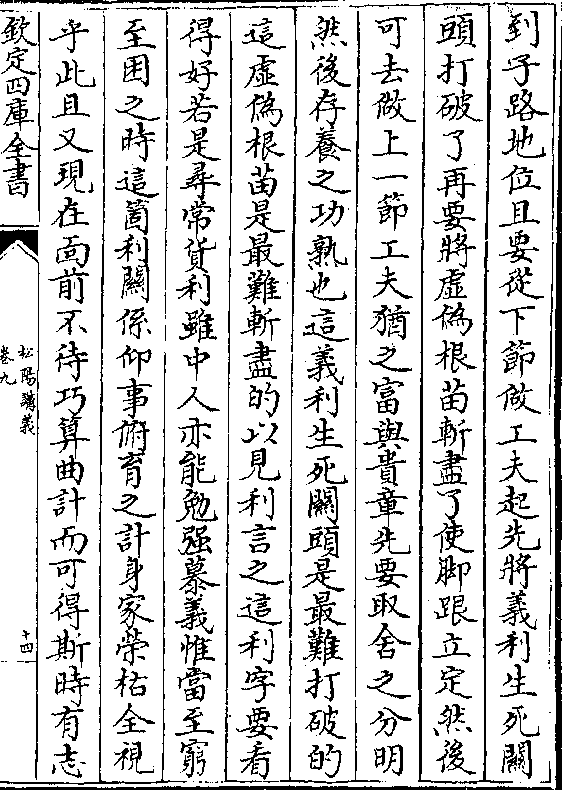 到子路地位且要從下節做工夫起先將義利生死關
頭打破了再要將虛偽根苗斬盡了使脚跟立定然後
可去做上一節工夫猶之富與貴章先要取舍之分明
然後存養之功熟也這義利生死關頭是最難打破的
這虛偽根苗是最難斬盡的以見利言之這利字要看
得好若是尋常貨利雖中人亦能勉强慕義惟當至窮
至困之時這箇利關係仰事俯育之計身家榮枯全視
乎此且又現在面前不待巧算曲計而可得斯時有志
欽定四庫全書
松陽講義
卷九
十四